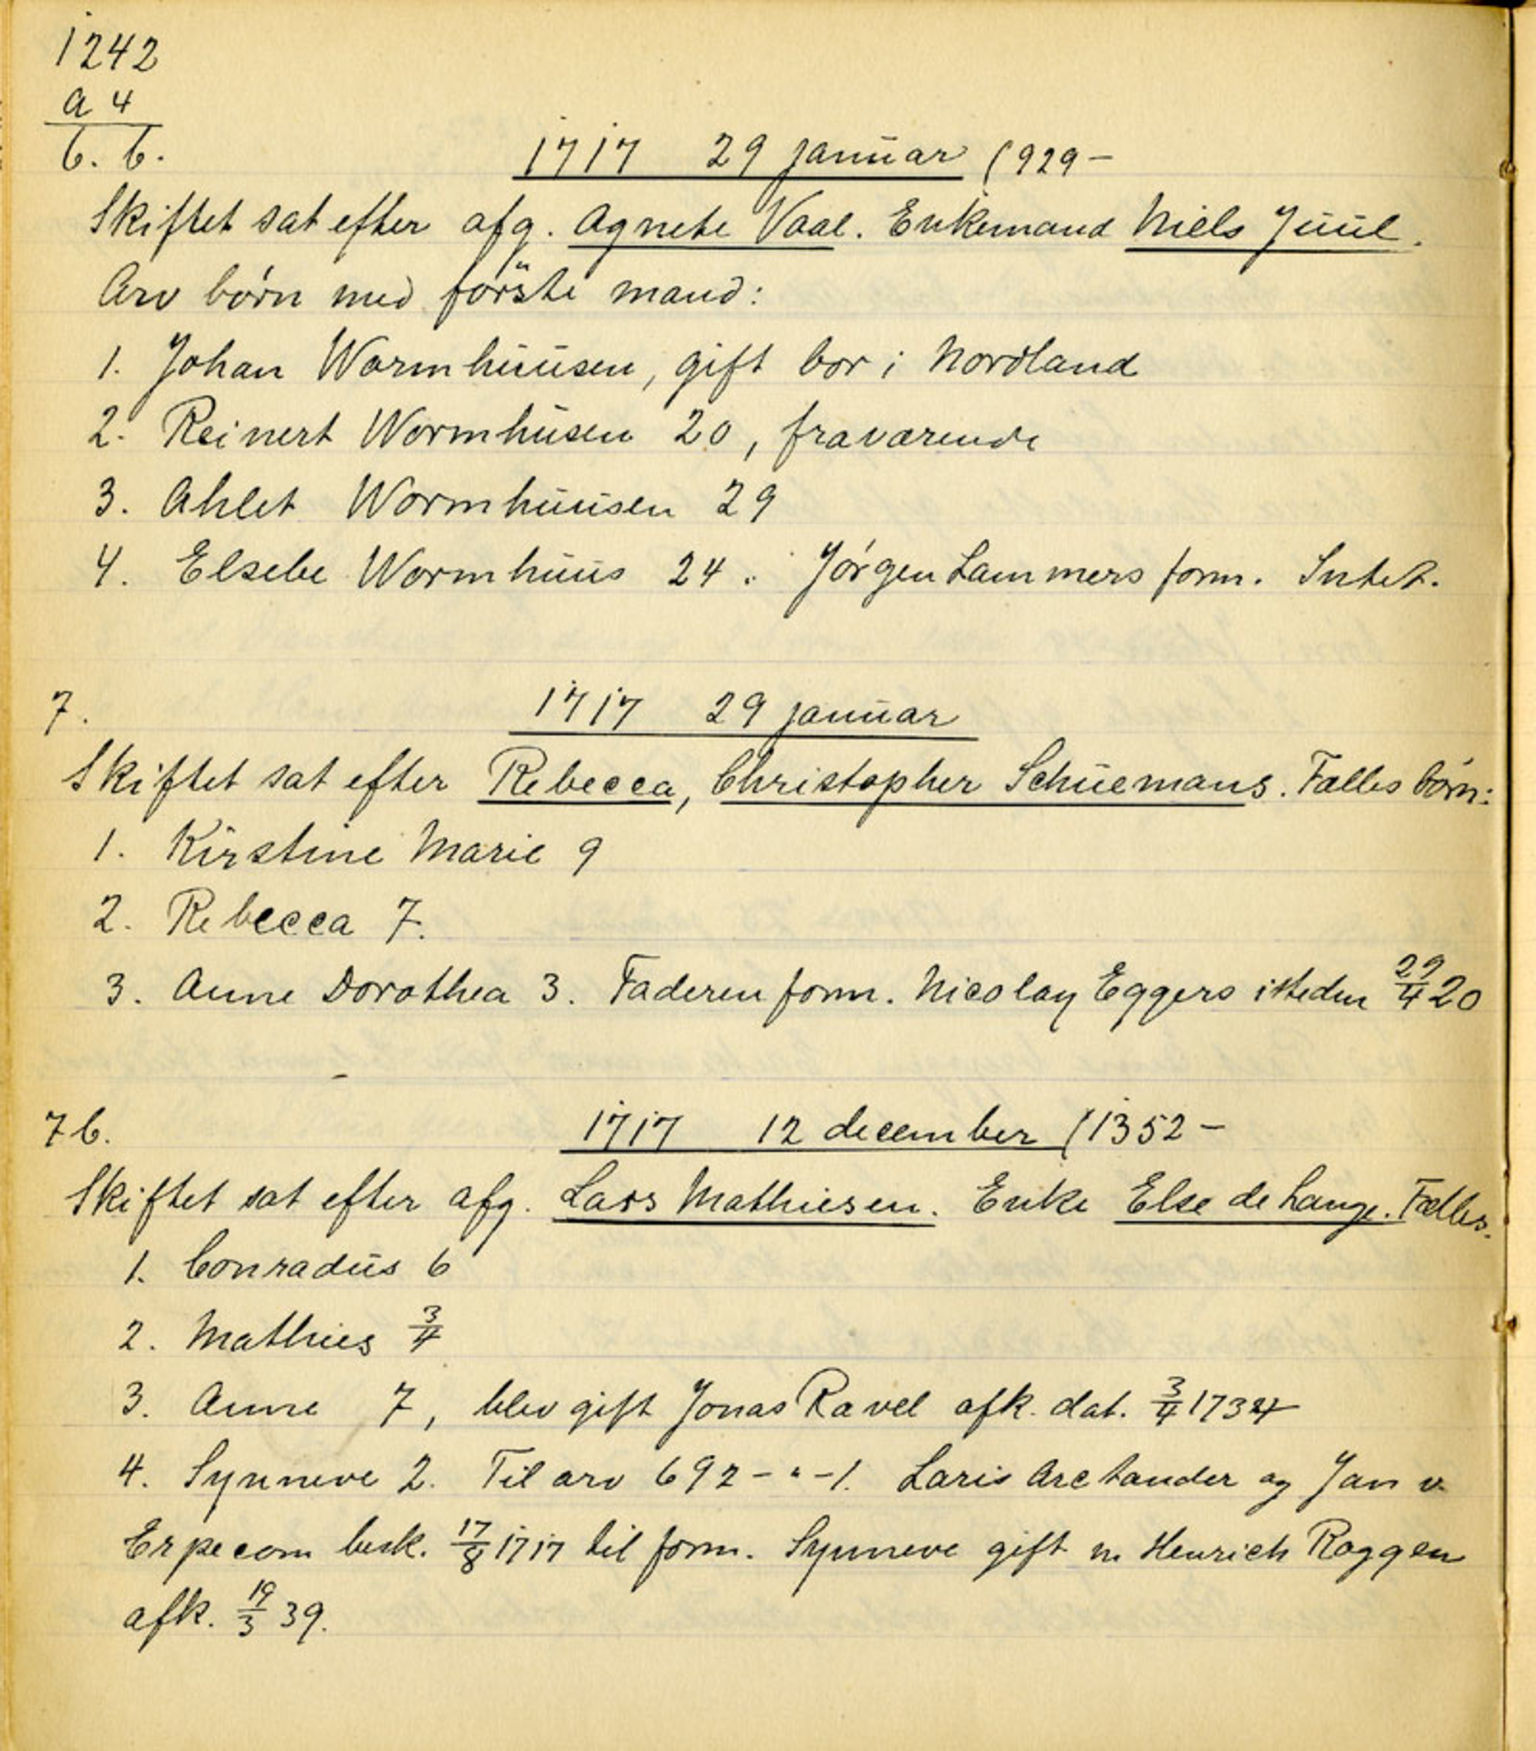 1242
a 4
6. b.
1717 29 januar (929-
Skiftet sat efter afg. Agnete Vaal. Enkemand Niels Juul.
Arv børn med förste mand:
1. Johan Wormhuusen, gift bor i Nordland
2. Reinert Wormhusen 20, fraværende
3. Ahlet Wormhuusen 29
4. Elsebe Wormhuus 24. Jørgen Lammers form. Intet.
7. 1717 29 januar
Skiftet sat efter Rebecca, Christopher Schuemans. Fælles børn:
1. Kirstine Marie 9
2. Rebecca 7.
3. Anne Dorothea 3. Faderen form. Nicolay Eggers isteden 29/4 20
7b. 1717 12 december (1352-
Skiftet sat efter afg. Lars Mathiesen. Enke Else de Lange. Fælles.
1. Conradus 6
2. Mathies 3/4
3. Anne 7, blev gift Jonas Ravel afk. dat. 3/4 1734
4. Synneve 2. Til arv 692-"-1. Laris Arctander og Jan v.
Erpecom besk. 17/8 1717 til form. Synneve gift m Henrich Roggen
afk. 19/3 39.